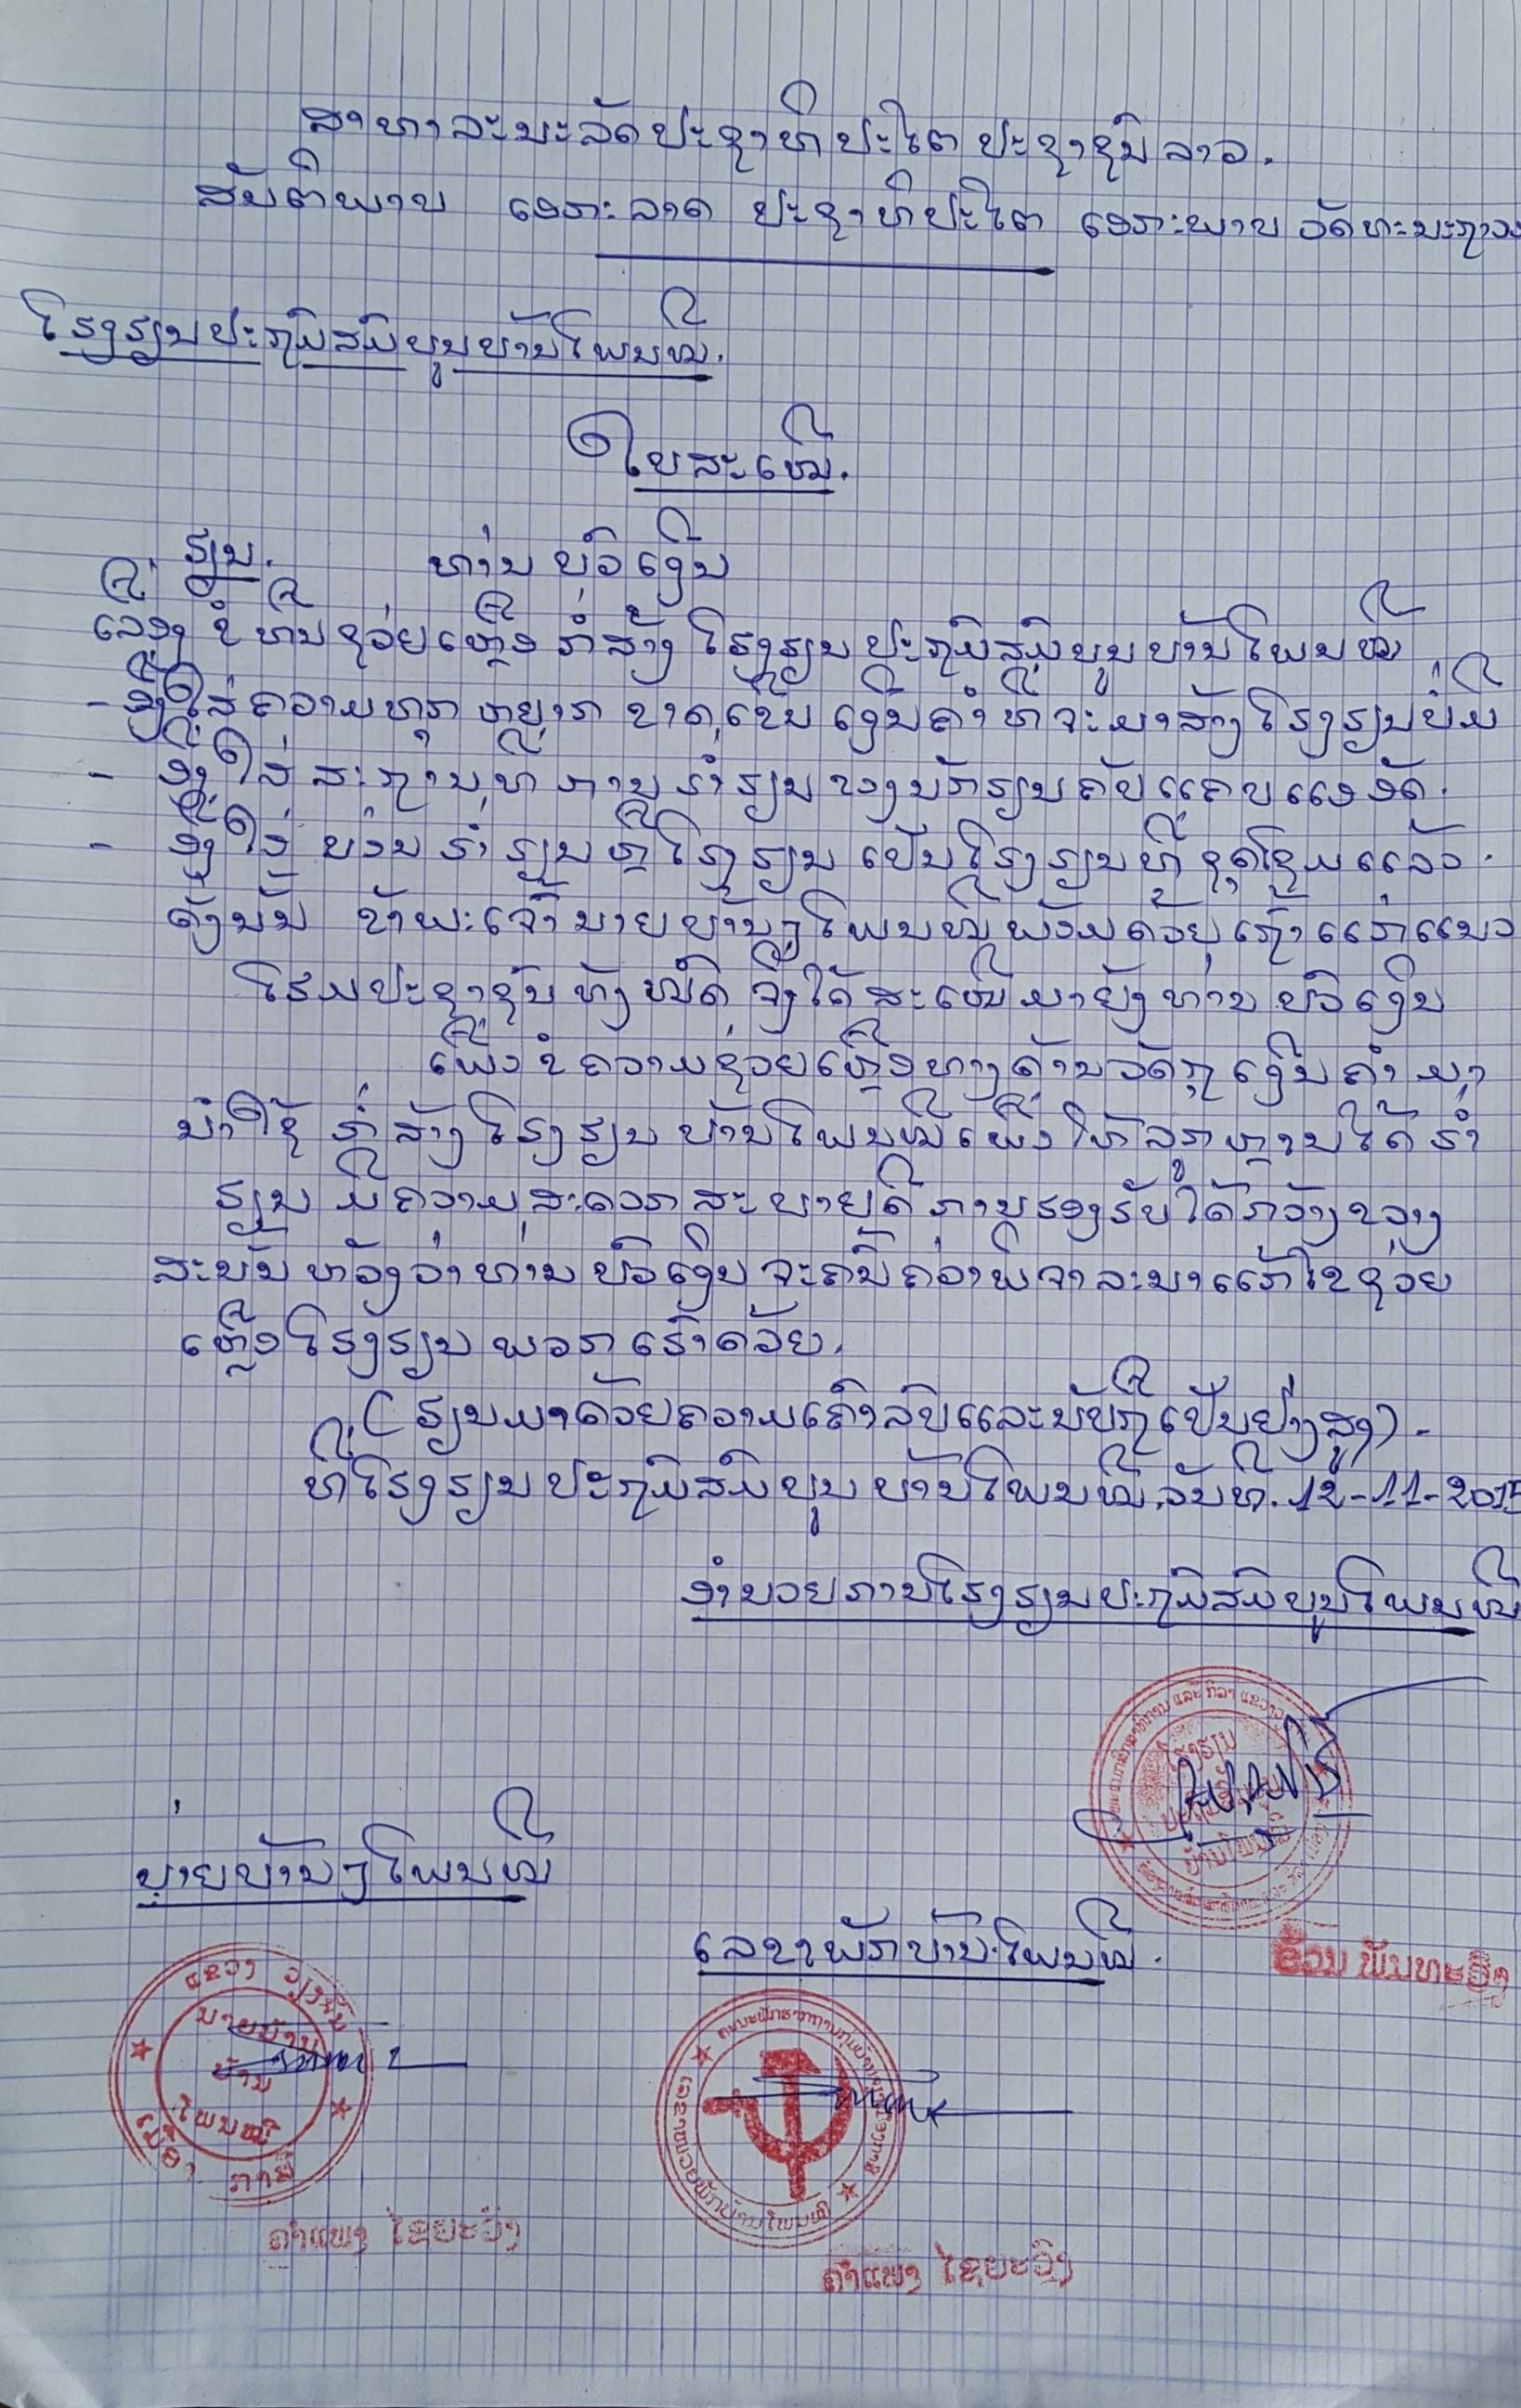 ສາທາລະນະລັດປະຊາທິປະໄຕ ປະຊາຊົນລາວ.
ສັນຕິພາບ ເອກະລາດ ປະຊາທິປະໄຕ ເອກະພາບ ວັດທະນະຖາວອ
ໂຮງຮຽນປະຖົມສົມບູນບ້ານໂພນໝີ.
ໃບສະເໜີ.
ຮຽນ. ທ່ານ ບົວເງິນ
ເລື່ອງ ຂໍທຶນຊ່ວຍເຫຼືອ ກໍ່ສ້າງ ໂຮງຮຽນ ປະຖົມສົມບູນບ້ານໂພນໝີ
- ອີງໃສ່ຄວາມທຸກ ຫຍຸ້ງາກ ຂາດເຂີນ ເງິນຄຳ ທີ່ຈະມາສ້າງໂຮງຮຽນບໍ່ມີ
- ອີງໃສ່ ສະຖານທີ່ ການຮ່ຳຮຽນຂອງນັກຮຽນຄັບແຄບແອອັດ.
- ອີງໃສ່ ບ່ອນຮ່ຳຮຽນຫຼືໂຮງຮຽນ ເປັນໂຮງຮຽນທີ່ ຊຸດໂຊມແລ້ວ.
ດັ່ງນັ້ນ ຂ້າພະເຈົ້ານາຍບ້ານໆໂພນໝີພ້ອມດ້ວຍເຖົ້າແກ່ແນວ
ໂຮມປະຊາຊົນທັງໝົດ ຈຶ່ງໄດ້ສະເໜີມາຍັງທ່ານ ບົວເງິນ
ເພື່ອຂໍຄວາມຊ່ວຍເຫຼືອທາງດ້ານວັດຖຸ ເງິນຄຳ ມາ
ນຳໃຊ້ ກໍ່ສ້າງໂຮງຮຽນ ບ້ານໂພນໝີເພື່ອໃຫ້ລູກຫຼານໄດ້ ຮ່ຳ
ຮຽນ ມີຄວາມສະດວກສະບາຍດີ ການຮອງຮັບໄດ້ກວ້າງຂວາງ
ສະນັ້ນ ຫວັງວ່າທ່ານ ບົວເງິນ ຈະຄົ້ນຄ່ວາພິຈາລະນາແກ້ໄຂຊ່ວຍ
ເຫຼືອໂຮງຮຽນ ພວກເຮົາດ້ວຍ.
(ຮຽນມາດ້ວຍຄວາມເຄົາລົບແລະນັບຖືເປັນຢ່າງສູງ).
ທີ່ໂຮງຮຽນປະຖົມສົມບູນ ບ້ານໂພນໝີ.ວັນທີ.12-11-201
ອຳນວຍການໂຮງຮຽນປະຖົມສົມບູນໂພນໝີ
ໂຮງຮຽນ
ບ້ານໂພນໝີ
ນາຍບ້ານໆໂພນໝີ
ເລຂາພັກບ້ານໂພນໝີ.
ອ້ວນ ພັນທະວົງ
ແຂວງ ວຽງຈັນ
ນາຍບ້ານ
ບ້ານ
ໂພນໝີ
ເລຂາໜ່ວຍພັກບ້ານໂພນໝີ
ຄຳແພງ ໄຊຍະວົງ
ຄຳແພງ ໄຊຍະວົງ